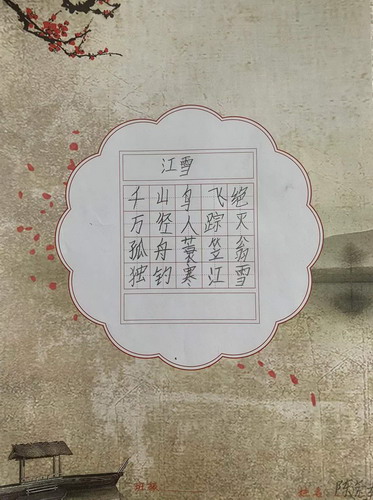 江雪
千山鸟飞绝
万径人踪灭
孤舟蓑笠翁
独钓寒江雪
班级
姓名:陈